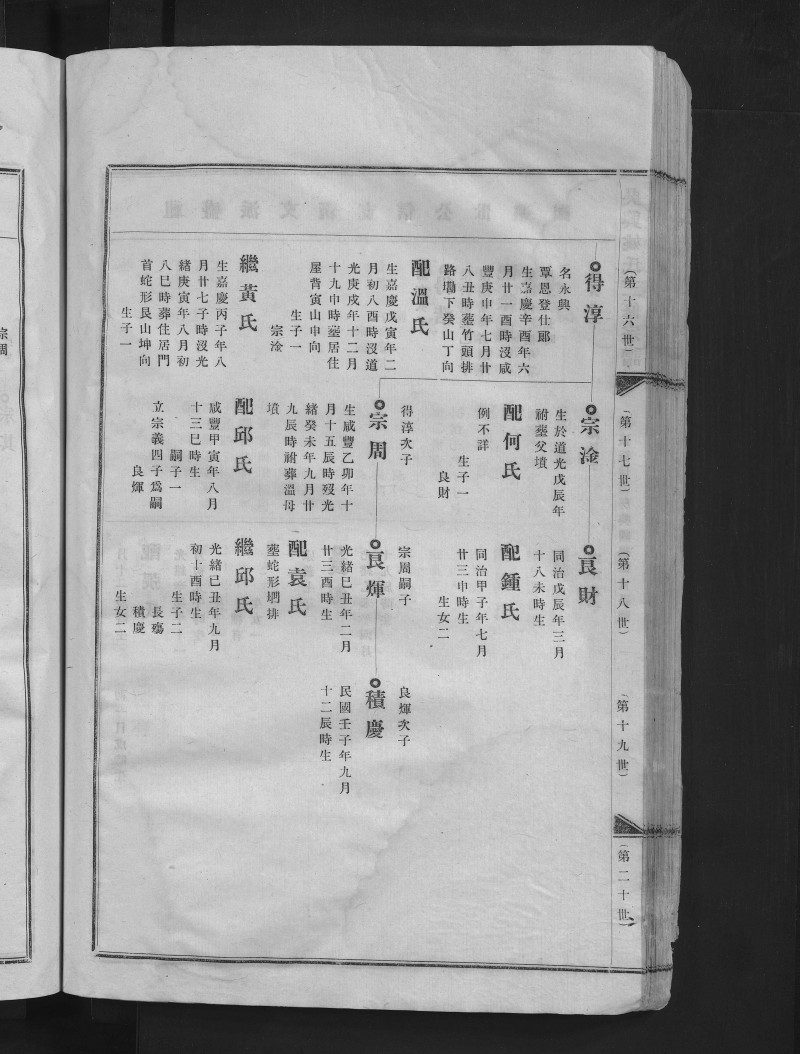 （第十六世）
得淳
名永興
覃恩登仕郎
生嘉慶辛酉年六
月廿一酉時沒咸
豐庚申年七月廿
八丑時塟竹頭排
路墈下癸山丁向
配溫氏
生嘉慶戊寅年二
月初八酉時沒道
光庚戌年十二月
十九申時塟居住
屋背寅山申向
生子一
宗淦
繼黃氏
生嘉慶丙子年八
月廿七子時沒光
緒庚寅年八月初
八巳時葬住居門
首蛇形艮山坤向
生子一
（第十七世）
宗淦
生於道光戊辰年
祔塟父墳
配何氏
例不詳
生子一
良財
得淳次子
宗周
生咸豐乙卯年十
月十五辰時歿光
緒癸未年九月廿
九辰時祔葬溫母
墳
配邱氏
咸豐甲寅年八月
十三巳時生
嗣子一
立宗義四子爲嗣
良輝
（第十八世）
良財
同治戊辰年三月
十八未時生
配鍾氏
同治甲子年七月
廿三申時生
生女二
宗周嗣子
良輝
光緒巳丑年二月
廿三酉時生
配袁氏
塟蛇形壩排
繼邱氏
光緒巳丑年九月
初十酉時生
生子二
長殤
積慶
生女二
（第十九世）
良輝次子
積慶
民國壬子年九月
十二辰時生
（第二十世）
宗周